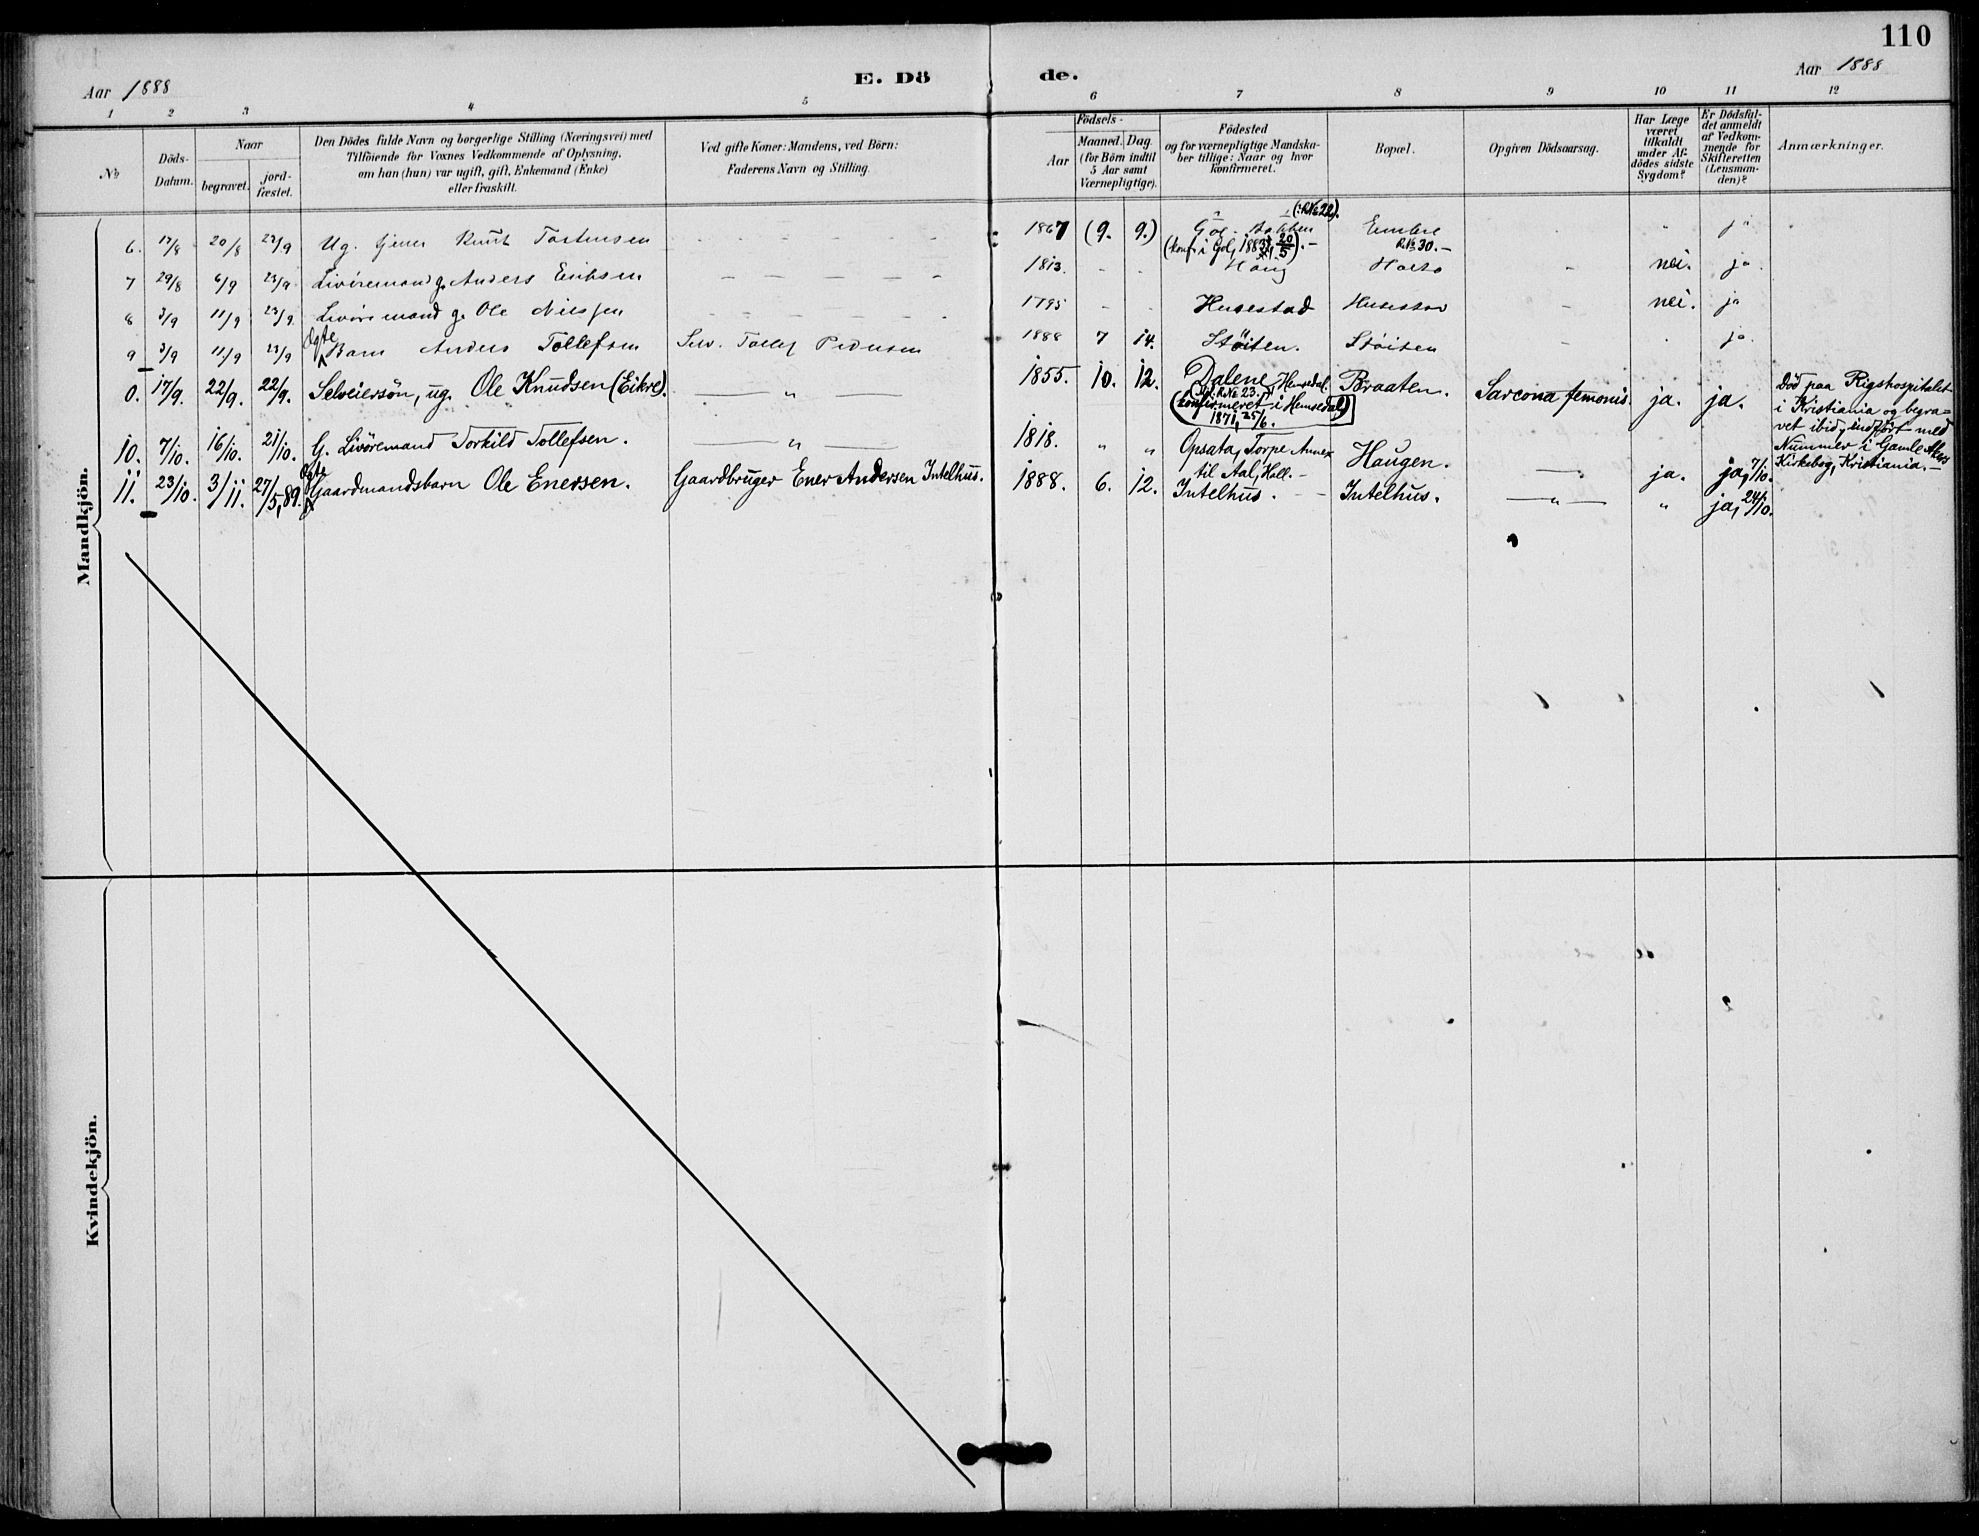 110
Aar 1888
E. Dö de.
Aar 1888
1 2 3 4 5 6 7 8 9 10 11 12
No
Döds-Datum.
Naar
begravet.
jord-fæstet.
Den Dödes fulde Navn og borgerlige Stilling (Næringsvei) med
Tilföiende for Voxnes Vedkommende af Oplysning,
om han (hun) var ugift, gift, Enkemand (Enke)
eller fraskilt.
Ved gifte Koner: Mandens, ved Börn:
Faderens Navn og Stilling.
Födsels-
Aar
Maaned. Dag
(for Börn indtil
5 Aar samt
Værnepligtige).
Födested
og for værnepligtige Mandska-
ber tillige: Naar og hvor
konfirmeret.
Bopæl.
Opgiven Dödsaarsag.
Har Læge
været
tilkaldt
under Af-
dödes sidste
Sygdom?
Er Dödsfal-
det anmeldt
af Vedkom-
mende for
Skifteretten
(Lensman-
den)?
Anmærkninger.
Mandkjön.
6. 17/8 20/8 23/9 Ug. tjener Knut Torstensen 1867 (9. 9.) Gol. (: R№ 22). (konf. i Gol, 1883, 20/5). — R№ 30. — ja
7 29/8 6/9 23/9 Livöremand g. Anders Eriksen 1813. Haug nei. ja.
8 3/9 11/9 23/9 Livöremand g. Ole Nilssen 1795 Husestad Husestad nei. ja
9 3/9 11/9 23/9 Ægte Barn Anders Tollefsen Selv. Tollef Pedersen 1888 7 14. Stöiten. Stöiten ja.
0. 17/9. 22/9. 22/9. Selveiersön, ug. Ole Knudsen (Eikre). — „ — 1855. 10. 12. Dalene, Hemsedal. R№ 23. (konfirmeret i Hemsedal) 1871, 25/6. Braaten. Sarcona femoris. ja. ja. Död paa Rigshospitalet
i Kristiania og begra-
vet ibid, indfört med
Nummer i Gamle Akers
Kirkebog, Kristiania. —
10. 7/10. 16/10. 21/10. G. Livöremand Torkild Tollefsen. — „ — 1818. „ „ Opsata, Torpe Annex til Aal, Hall. — Haugen. — „ — ja. ja, 7/10.
11. 23/10. 3/11. 27/5, 89. Ægte Gaardmandsbarn Ole Enersen. Gaardbruger Ener Andersen Intelhus. 1888. 6. 12. Intelhus. — Intelhus. — „ — „ ja, 24/10.
Kvindekjön.